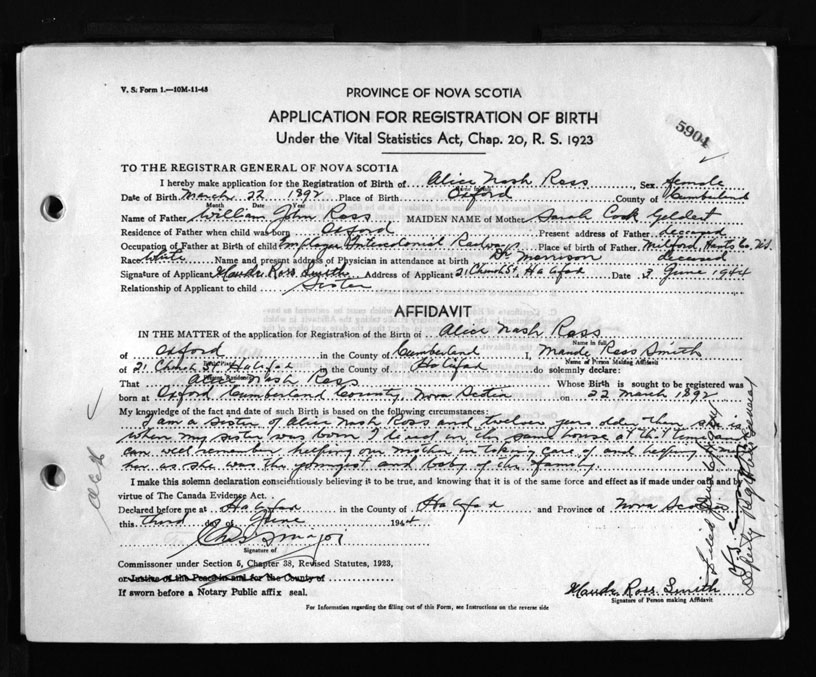 V. S. Form 1.—10M-11-43
PROVINCE OF NOVA SCOTIA
APPLICATION FOR REGISTRATION OF BIRTH
Under the Vital Statistics Act, Chap. 20, R. S. 1923
5904
TO THE REGISTRAR GENERAL OF NOVA SCOTIA
I hereby make application for the Registration of Birth of Alice Nash Ross, Sex female
Name in full
Date of Birth March 22 1892 Place of Birth Oxford County of Cumberland
Month Date Year
Name of Father William John Ross MAIDEN NAME of Mother Sarah Cook Geldert
Residence of Father when child was born Oxford Present address of Father deceased
Occupation of Father at Birth of child Employee Intercolonial Railway Place of Birth of Father Milford, Hants Co. N.S.
Race White Name and present address of Physician in attendance at birth Dr Morrison deceased
Signature of Applicant Maude Ross Smith Address of Applicant 21 Church St, Halifax Date 3 June 1944
Relationship of Applicant to child Sister
AFFIDAVIT
IN THE MATTER of the application for Registration of the Birth of Alice Nash Ross
Name in full
of Oxford in the County of Cumberland I, Maude Ross Smith
Name of Person Making Affidavit
of 21 Church St Halifax in the County of Halifax do solemnly declare:
That Alice Nash Ross Whose Birth is sought to be registered was
born at Oxford Cumberland County, Nova Scotia on 22 March 1892
My knowledge of the fact and date of such Birth is based on the following circumstances:
I am a sister of Alice Nash Ross and twelve years older than she is
when my sister was born I lived in the same house at that time and
can well remember helping our mother in taking care of and helping
her as she was the youngest and baby of the family.
I make this solemn declaration conscientiously believing it to be true, and knowing that it is of the same force and effect as if made under oath and by
virtue of The Canada Evidence Act.
Declared before me at Halifax in the County of Halifax and Province of Nova Scotia
this third day of June 1944
Signature of
Commissioner under Section 5, Chapter 38, Revised Statutes, 1923,
or Justice of the Peace in and for the County of
If sworn before a Notary Public affix seal.
Maude Ross Smith
Signature of Person making Affidavit
For Information regarding the filling out of this Form, see Instructions on the reverse side
Deputy Registrar General